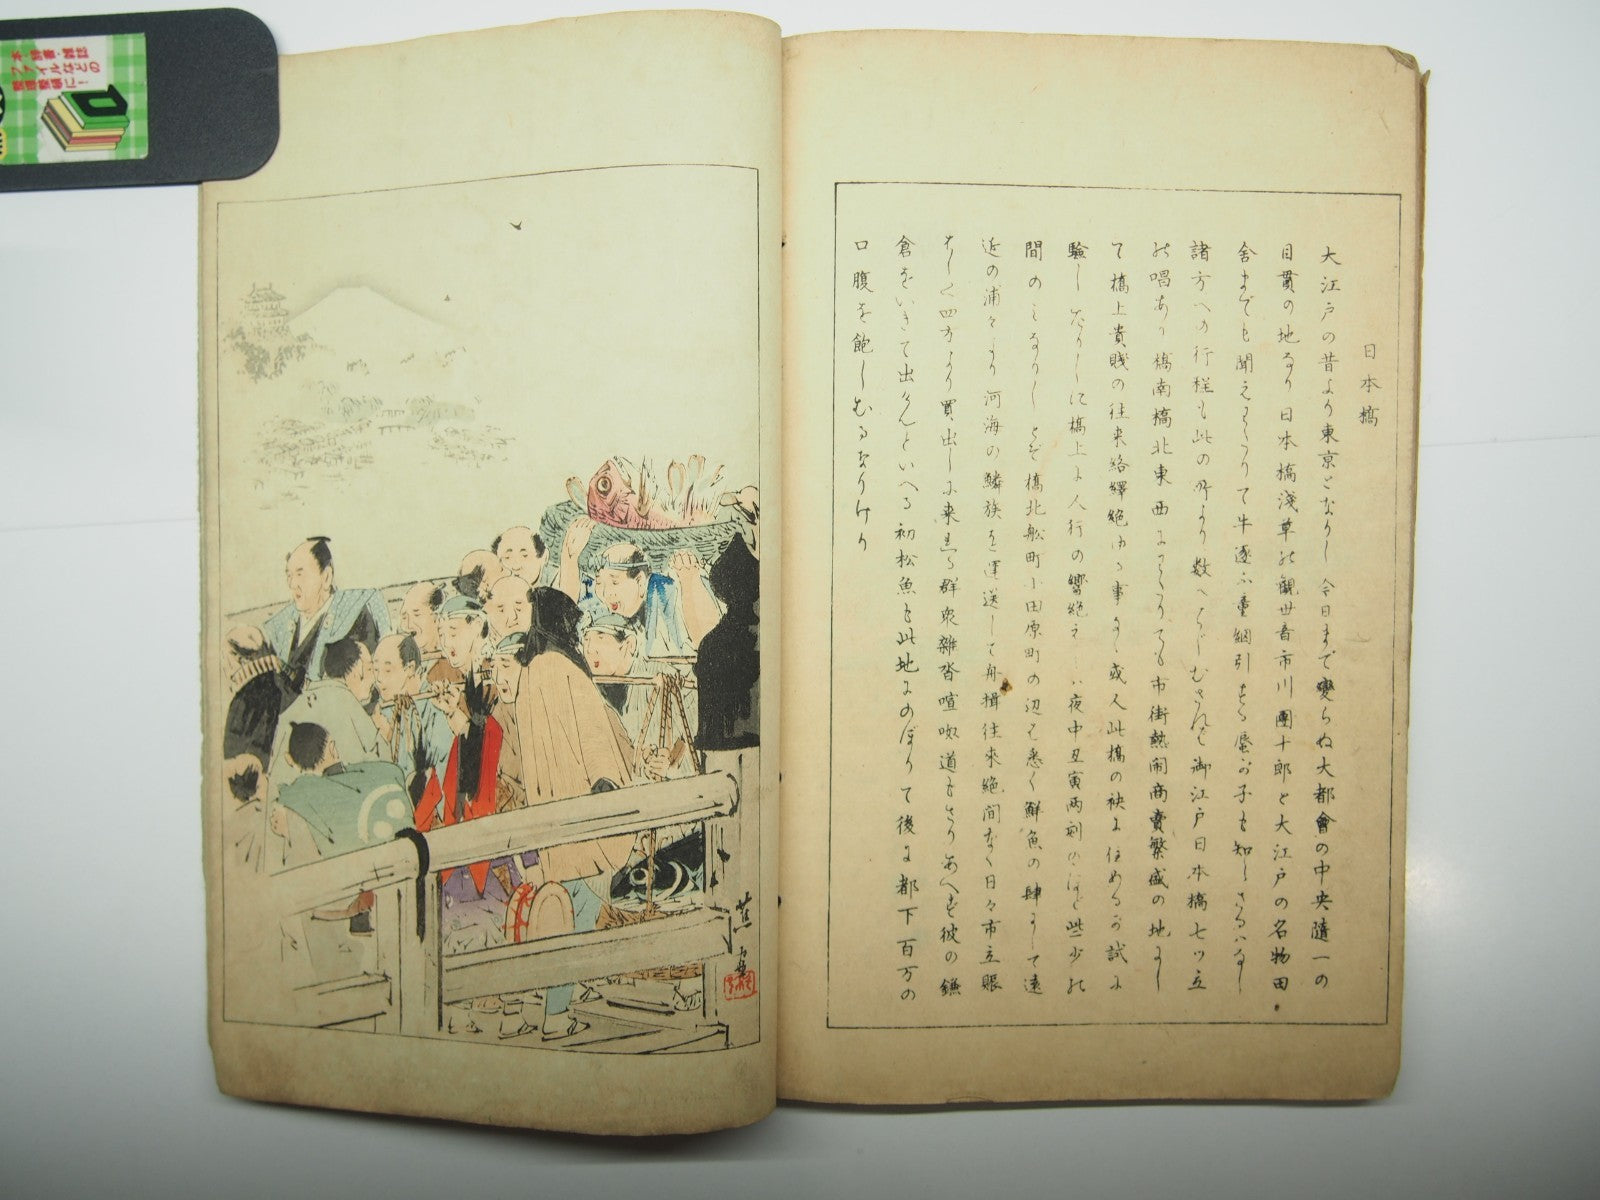 日本橋
大江戸の昔より東京となりし今日まで変らぬ大都會の中央随一の
目貫の地なり日本橋浅草の観世音市川團十郎と大江戸の名物田
舎までも聞えわたりて牛逐ふ童網引する蜑が子も知らざるハなし
諸方への行程も此の所より数へはじむされバ御江戸日本橋七ツ立
の唱あり橋南橋北東西にわたりても市街熱閙商賣繁盛の地にし
て橋上貴賤の往来絡繹絶ゆる事なし或人此橋の袂に住めるが試に
驗したりしに橋上に人行の響絶えしハ夜中丑寅両刻のほど些少の
間のミなりしとぞ橋北船町小田原町の辺は悉く鮮魚の肆にして遠
近の浦々より河海の鱗族を運送して舟楫往来絶間なく日々市立賑
はしく四方より買出しに来る群衆雑沓喧呶道もさりあへず彼の鎌
倉をいきて出けんといへる初松魚も此地にのぼりて後に都下百万の
口腹を飽しむるなりけり
本・辞書・雑誌
ファイルなどの
整理整頓に!